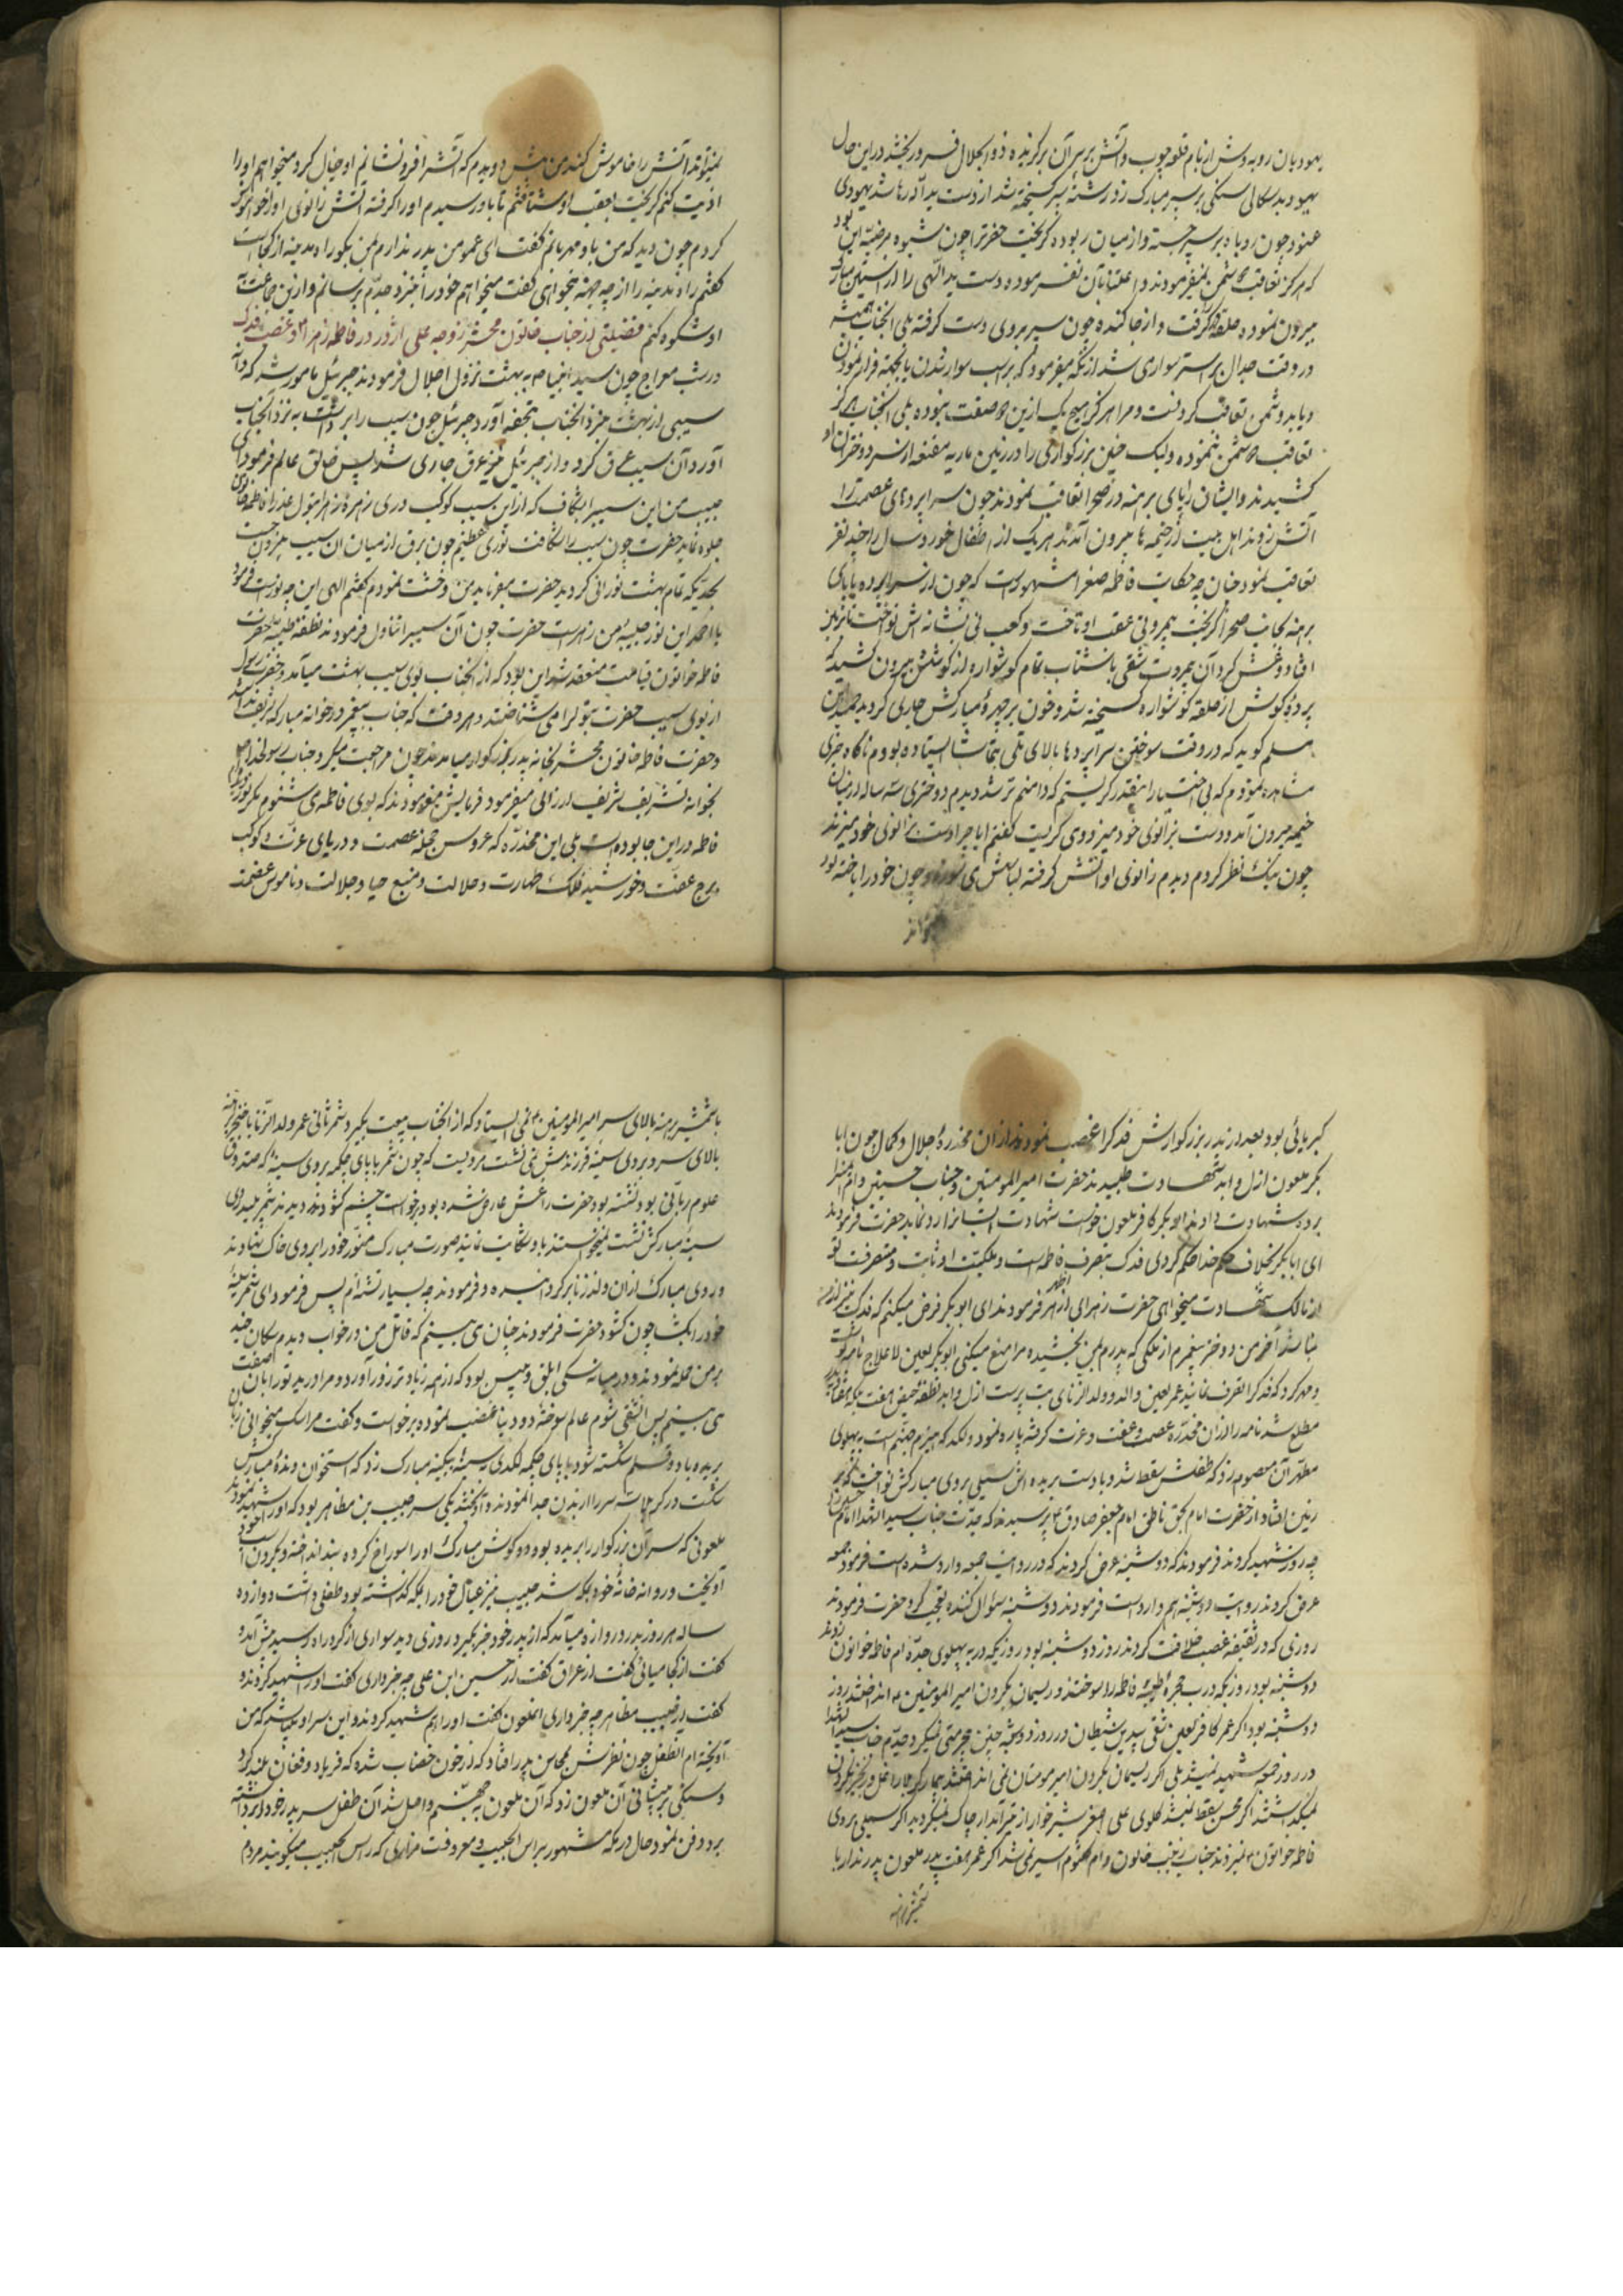 یهودیان روبه وش از بام قلعه چوب و آتش بر سر آن برگزیده ذوالجلال فرو ریختند در این حال
یهود بد سکالی سنگی بر سپر مبارک زد رشته سپر گسیخته شد از دست ید الله رها شد یهودی
عنود چون روباه بر سپر جسته و از میان ربوده گریخت حضرت را چون شیوه مرضیه این بود
که هرگز تعاقب دشمن نمیفرمودند و اعتنا بآن نفرموده دست ید اللهی را از آستین مبارک
بیرون نموده حلقه در را گرفت و از جا کنده چون سپر بر روی دست گرفته بلی آنجناب همیشه
در وقت جدال بر استر سواری شد از آنکه میفرمود که بر اسب سوار شدن یا بجهة فرار نمودن
و یا بدو دشمن تعاقب کردنست و مرا هرگز هیچ یک ازین دو صفت نبوده بلی آنجناب هرگز
تعاقب دشمن ننموده ولیک چنین بزرگواری را در زمین ماریه مقنعه از سر دختران او
کشیدند و ایشان را پای برهنه در صحرا تعاقب نمودند چون سراپرده‌های عصمت را
آتش زدند اهل بیت از خیمه‌ها بیرون آمدند هر یک از اطفال خورد سال را چند نفر
تعاقب نمود چنانچه حکایت فاطمه صغرا مشهور است که چون از سراپرده با پای
برهنه بجانب صحرا گریخت بیمروتی عقب او تاخت و کعب نی بشانه‌اش نواخت تا بر زمین
افتاد و غش کرد آن بیمروت شقی باشتاب تمام گوشواره از گوشش بیرون کشید که
پرده گوش از حلقه گوشواره گسیخته شد و خون بر چهره مبارکش جاری گردید حمید ابن
مسلم گوید که در وقت سوختن سراپرده‌ها بالای تلی بتماشا ایستاده بودم ناگاه چیزی
مشاهده نمودم که بی اختیار اینقدر گریستم که دامنم تر شد دیدم دختری سه ساله از میان
خیمه بیرون آمد و دست بزانوی خود میزد و می گریست گفتم آیا چرا دست بزانوی خود میزند
چون نیک نظر کردم دیدم زانوی او آتش گرفته لباسش می سوزد و چون خود را باخته بود
نمیتواند آتش را خاموش کند من پیش دویدم که آتش را فرو نشانم او خیال کرد میخواهم او را
اذیت کنم گریخت بعقب او شتافتم تا باو رسیدم او را گرفته آتش زانوی او را خاموش
کردم چون دید که من باو مهربانم گفت ای عمو من پدر ندارم بمن بگو راه مدینه از کجاست
گفتم راه مدینه را از چه جهة میخواهی گفت میخواهم خود را نزد جدم برسانم و ازین جماعت به
او شکوه کنم فضیلتی از جناب خاتون محشر زوجه علی اژدر در فاطمه زهرا و غصب فدک
در شب معراج چون سید انبیا به بهشت نزول اجلال فرمودند جبرئیل مامور شد که
سیبی از بهشت بنزد آنجناب بتحفه آورد جبرئیل چون سیب را برداشت به نزد آنجناب
آورد آن سیب عرق کرد و از جبرئیل نیز عرق جاری شد پس خالق عالم فرمود ای
حبیب من این سیب را بشکاف که از این سیب کوکب دری زهره زهرا بتول عذرا فاطمه
جلوه نماید حضرت چون سیب را شکافت نوری عظیم چون برق از میان آن سیب بیرون جست
بحدیکه تمام بهشت نورانی گردید حضرت میفرماید من وحشت نمودم گفتم الهی این چه نورست فرمود
یا احمد این نور حبیبه من زهراست حضرت چون آن سیب را تناول فرمودند نطفه طیبه حضرت
فاطمه خاتون قیامت منعقد شد این بود که از آنجناب بوی سیب بهشت میآمد و حضرت رسول
از بوی سیب حضرت بتول را می شناختند و هر وقت که جناب پیغمبر در خانه مبارکه تشریف
و حضرت فاطمه خاتون محشر بخانه پدر بزرگوار میامدند چون مراجعت میکرد و جناب رسولخدا
بخانه تشریف ارزانی میفرمود فرمایش میفرمودند که بوی فاطمه می شنوم مگر نور
فاطمه در این جا بوده است بلی این مخدره که عروس حجله عصمت و دریای عزت و کوکب
برج عفت و خورشید فلک طهارت و جلالت و منبع حیا و جلالت و ناموس عظمت
کبریائی بود بعد از پدر بزرگوارش فدک را غصب نمودند از آن مخدره جلال و کمال چون ابا
بکر ملعون ازل و ابد شهادت طلبیدند حضرت امیرالمومنین و جناب حسنین و ام ایمن را
برده شهادت دادند ابوبکر کافر ملعون خواست شهادت ایشانرا رد نماید حضرت فرمودند
ای ابابکر بخلاف حکم خدا حکم کردی فدک بتصرف فاطمه است و ملکیت او ثابت و متصرفست تو
از مالک شهادت میخواهی حضرت زهرای ازهر فرمودند ای ابوبکر فرض میکنم که فدک
نباشد آخر من دختر پیغمبرم از ملکی که پدرم بمن بخشیده مرا منع میکنی ابوبکر لعین لاعلاج نامه نوشت
و مهر کرد که فدک را تصرف نمایند عمر لعین والد و ولد الزنای بت پرست ازل و ابد نطفه حیض
مطلع شد نامه را از آن مخدره عصمت و عفت و عزت گرفته پاره نمود و لگد که هیزم جهنم است به پهلوی
مطهر آن معصومه زد که طفلش سقط شد و با دست بریده اش سیلی بروی مبارکش نواخت که بر
زمین افتاد از حضرت امام بحق ناطق امام جعفر صادق پرسیدند که جدت جناب سیدالشهدا امام حسین را
چه روز شهید کردند فرمودند که دوشنبه عرض کردند که در روایت جمعه وارد شده است فرمود جمعه
عرض کردند روایت دوشنبه هم وارد است فرمودند دوشنبه سؤال کننده تعجب کرد حضرت فرمودند
روزی که در ثقیفه غصب خلافت کردند روز دوشنبه بود روزیکه در به پهلوی جده ام فاطمه خاتون زدند
دوشنبه بود روزیکه درب حجره طیبه فاطمه را سوختند و ریسمان بگردن امیرالمومنین انداختند روز
دوشنبه بود اگر عمر کافر لعین شقی پلید بن شیطان در روز دوشنبه چنین بیحرمتی نمیکرد جدم جناب سیدالشهدا
در روز جمعه شهید نمیشد بلی اگر ریسمان بگردن امیر مومنان نمی انداختند بیمار کربلا را غل و زنجیر بگردن
نمیگذاشتند اگر محسن سقط نمیشد گلوی علی اصغر شیرخوار از تیر آبدار چاک نمیگردید اگر سیلی بروی
فاطمه خاتون نمیزدند جناب زینب خاتون و ام کلثوم اسیر نمی شد اگر عمر هفت پدر ملعون پدر ندار با
شمشیر برهنه
با شمشیر برهنه بالای سر امیرالمومنین نمی ایستاد که از آنجناب بیعت بگیرد شمر ثانی عمر ولد الزنا با خنجر
بالای سر و بروی سینه فرزندش نمی نشست مرویست که چون شمر با پای چکمه بروی سینه که صندوق
علوم ربانی بود نشسته بود حضرت را غش عارض شده بود برخواست چشم گشودند دیدند شمر پلید روی
سینه مبارکش نشست نمیخواستند باو شکایت نمایند صورت مبارک منور خود را بروی خاک نهادند
و روی مبارک از آن ولد زنا بر گردانیده و فرمودند چه بسیار تشنه ام پس فرمود ای شمر سینه
خود را بگشا چون گشود حضرت فرمودند چنان می بینم که قاتل من در خواب دیدم سگان چند
بر من حمله نمودند و در میانه سگی ابلق و پیس بود که از همه زیادتر زور آورد و مرا درید تو را بآن صفت
می بینم پس آن شقی شوم عالم سوخته دود دنیا غضب نموده برخواست و گفت مرا سگ میخوانی زبان
بریده باد و قلم شکسته شود با پای چکمه لگدی بسینه بیکینه مبارک زد که استخوان دنده مبارکش
شکست در کربلا سرها از بدن جدا نمودند و آویختند یکی سر حبیب بن مظاهر بود که او را شهید نمودند
ملعونی که سر آن بزرگوار را بریده بود دو گوش مبارک او را سوراخ کرده بند انداخته و بگردن اسب خود
آویخت و روانه خانه خود بمکه شد حبیب نیز عیال خود را بمکه گذاشته بود طفلی داشت دوازده
ساله هر روز بدر دروازه میآمد که از پدر خود خبر بگیرد روزی دید سواری از گرد راه رسید پیش آمد و
گفت از کجا میائی گفت از عراق گفت از حسین ابن علی چه خبر داری گفت او را شهید کردند و
گفت از حبیب مظاهر چه خبر داری آنملعون گفت او را هم شهید کردند و این سر او میباشد که من
آویخته ام آنطفل چون نظرش بمحاسن پدر افتاد که از خون خضاب شده که فریاد و فغان بلند کرد
و سنگی بر پیشانی آن ملعون زد که آن ملعون به جهنم واصل شد آن طفل سر پدر خود را برداشته
برد و دفن نمود حال در مکه مشهور براس الحبیب و معروفست مزاری که راس الحبیب میگویند مردم